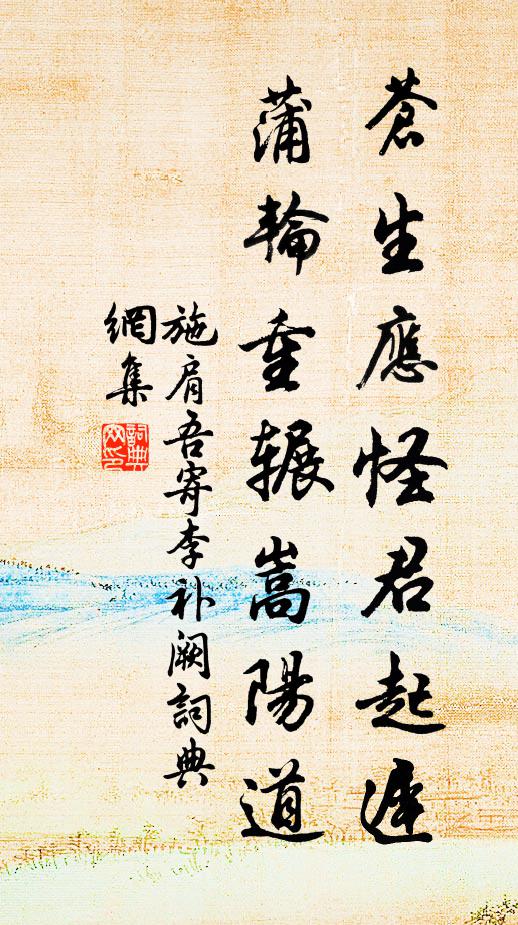 蒼生應怪君起遲
蒲輪重輾嵩陽道
施肩吾寄李补阙詞典
網集